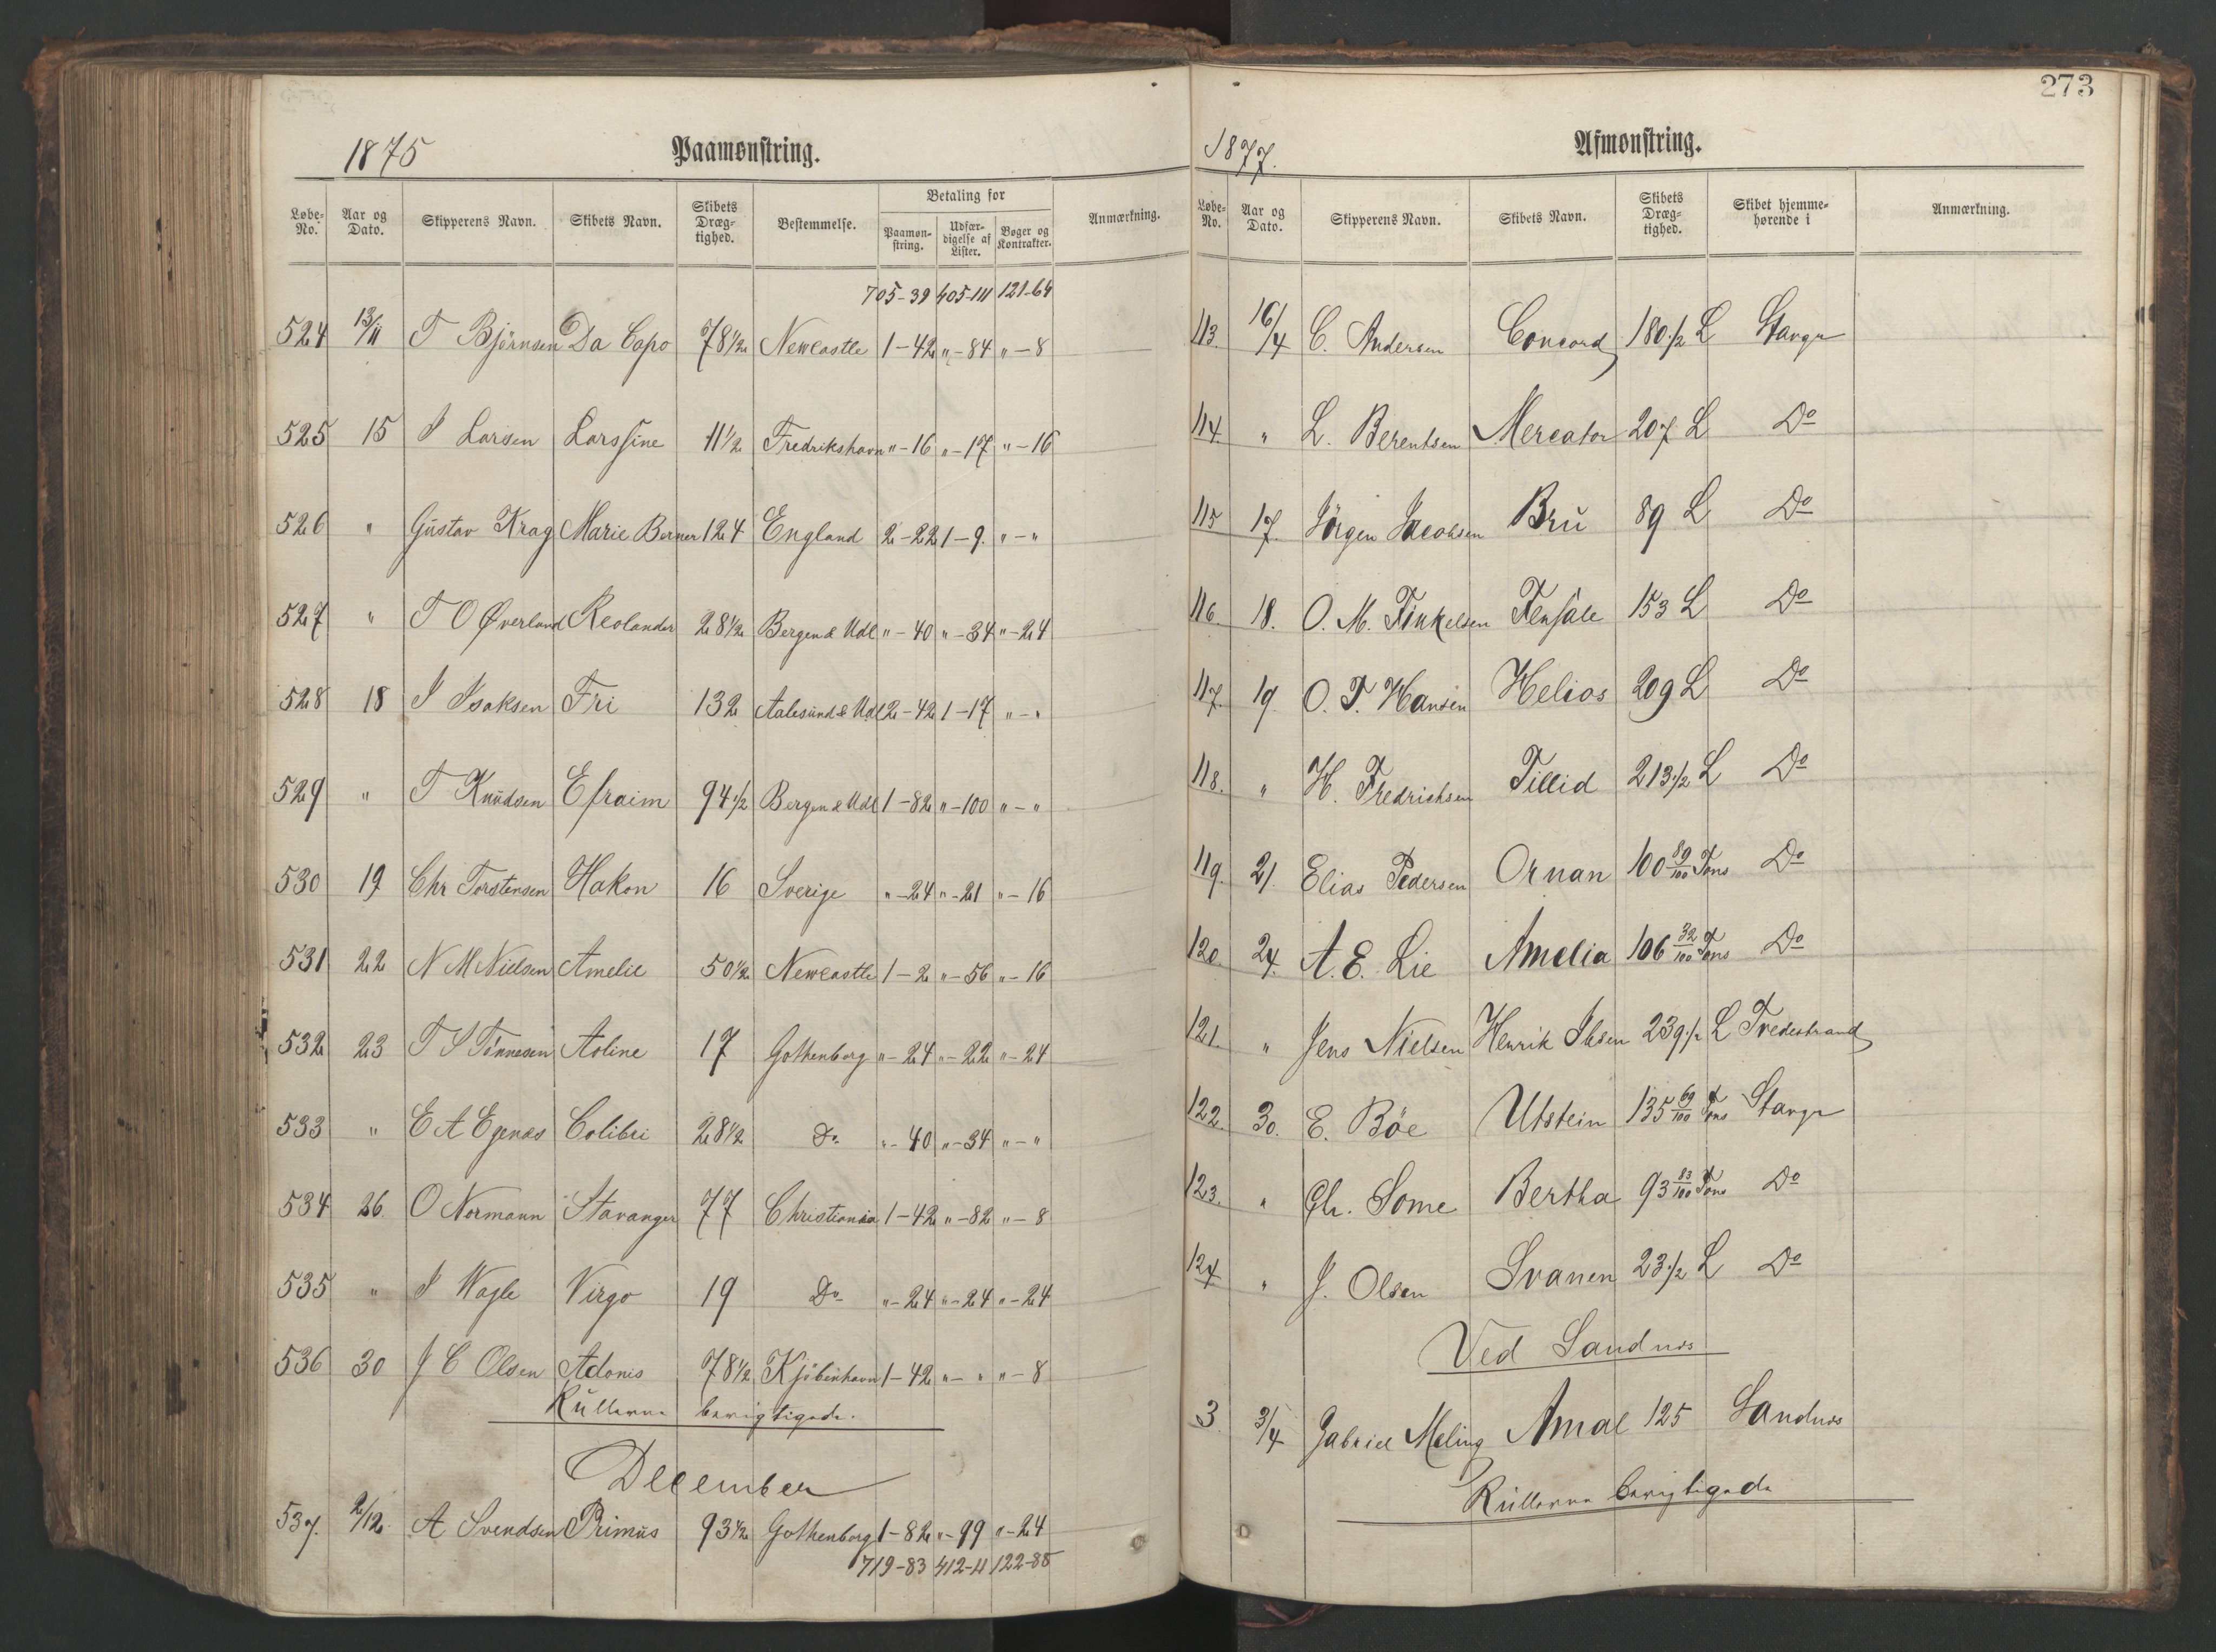 1875 Paamønstring.
Løbe-No. Aar og Dato. Skipperens Navn. Skibets Navn. Skibets Dræg-tighed. Bestemmelse. Betaling for Paamøn-string. Udfær-digelse af Lister. Bøger og Kontrakter. Anmærkning.
705-39 405-111 121-64
524 13/11 T Bjørnsen Da Capo 78 1/2 Newcastle 1-42 "-84 "-8
525 15 J Larsen Larssine 11 1/2 Fredrikshavn "-16 "-17 "-16
526 " Gustav Krag Marie Berner 124 England 2-22 1-9 "-"
527 " T O Øverland Reolander 28 1/2 Bergen & Udl "-40 "-34 "-24
528 18 J Isaksen Fri 132 Aalesund & Udl 2-42 1-17 "-"
529 " T Knudsen Efraim 94 1/2 Bergen & Udl 1-82 "-100 "-"
530 19 Chr Torstensen Hakon 16 Sverige "-24 "-21 "-16
531 22 N M Nielsen Amelie 50 1/2 Newcastle 1-2 "-56 "-16
532 23 T S Tönnesen Aoline 17 Gothenborg "-24 "-22 "-24
533 " E A Egenæs Colibri 28 1/2 Do "-40 "-34 "-"
534 26 O Normann Stavanger 77 Christiania 1-42 "-82 "-8
535 " J Wagle Virgo 19 Do "-24 "-24 "-24
536 30 J C Olsen Adonis 78 1/2 Kjöbenhavn 1-42 "-" "-8
Rullerne berigtigede.
December
537. 2/12 A Svendsen Primus 93 1/2 Gothenborg 1-82 "-99 "-24
719-83 412-11 122-88
273
1877. Afmønstring.
Løbe-No. Aar og Dato. Skipperens Navn. Skibets Navn. Skibets Dræg-tighed. Skibet hjemme-hørende i Anmærkning.
113. 16/4 C. Andersen Concord 180 1/2 L Stavgr
114. " L. Berentsen Mercator 207 L Do
115 17. Jörgen Jacobsen Bru 89 L Do
116. 18. O. M. Finkelsen 153 L Do
117. 19 O. T. Hansen Helios 209 L Do
118. " H. Fredrichsen Tillid 213 1/2 L Do
119. 21. Elias Pedersen Ornan 100 89/100 Tons Do
120. 24. A. E. Lie Amelia 106 32/100 Tons Do
121. " Jens Nielsen Henrik Ibsen 239 1/2 L Tvedestrand
122. 30. E. Böe Utstein 135 69/100 Tons Stavgr
123. " Chr. Some Bertha 93 83/100 Tons Do
124 " J. Olsen Svanen 23 1/2 L Do
Ved Sandnæs
3. 3/4 Gabriel Meling Amal 125 Sandnæs
Rullerne berigtigede